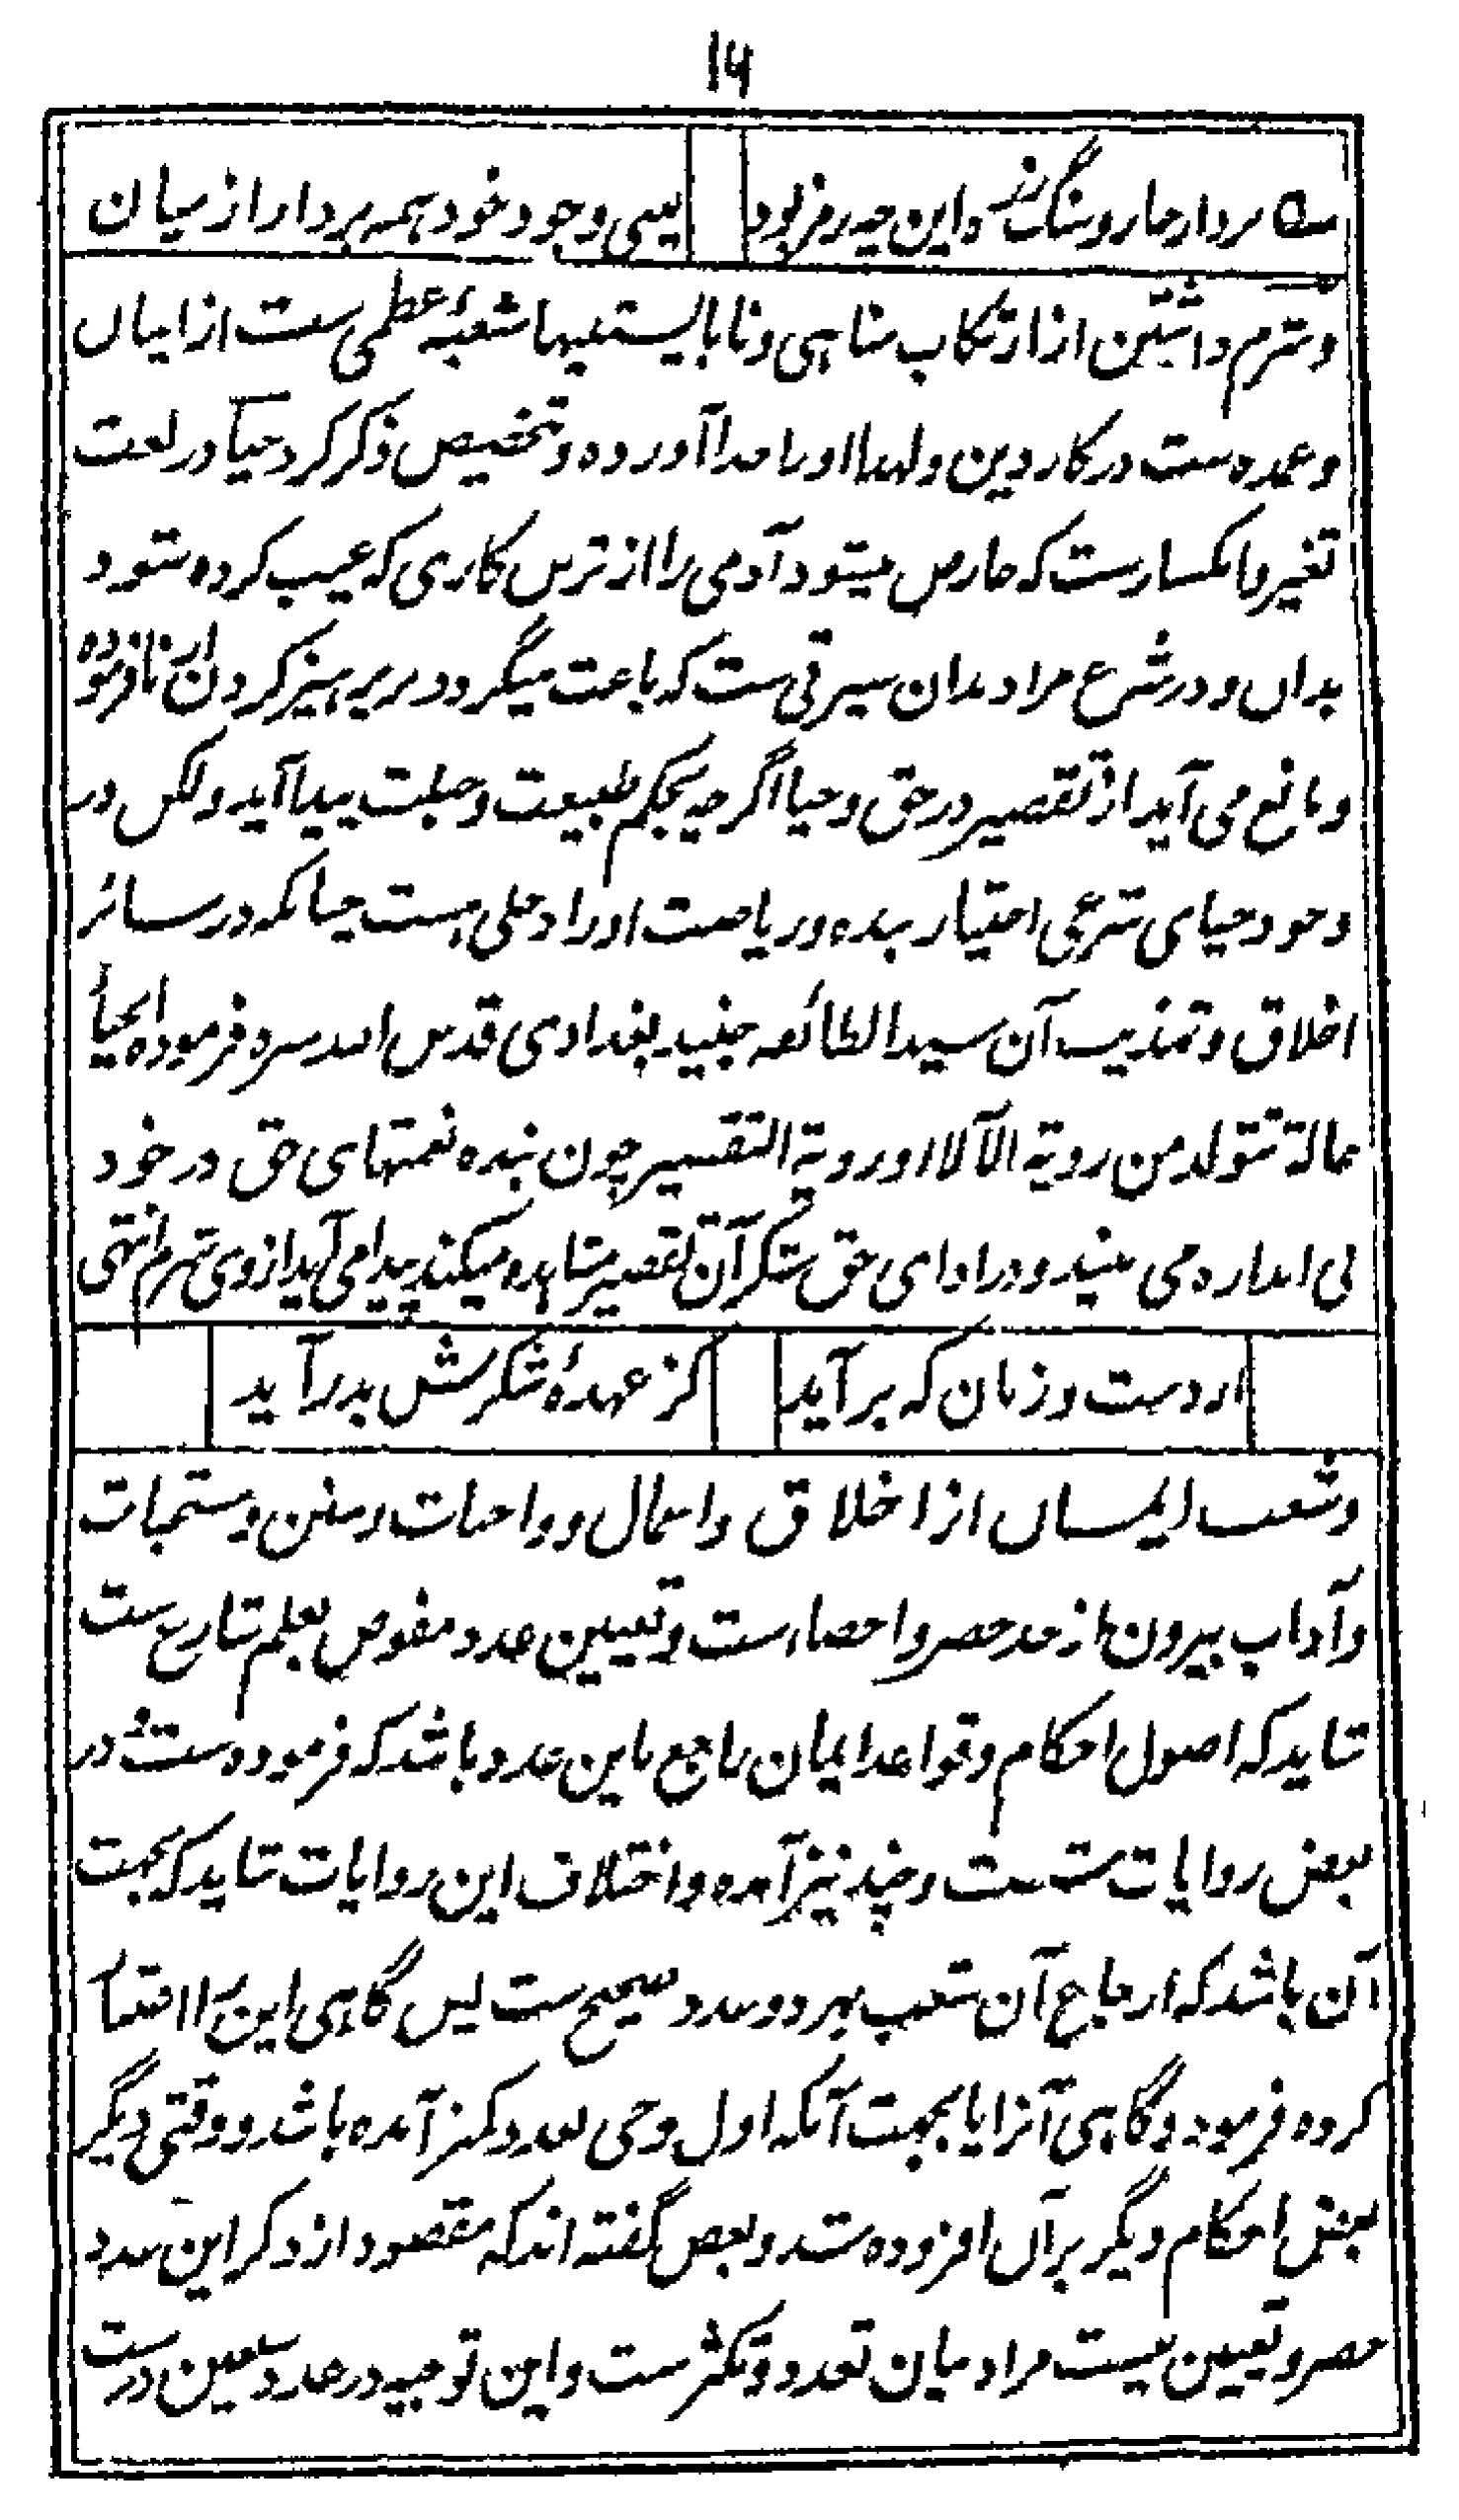 ۱۴
بردار خار و سنگ ز ره این چه رمز بود    یعنی وجود خود همه بردار از میان
و شرم داشتن از ارتکاب مناهی و نابایستیها شعبهٔ عظمی ست از ایمان
و عمده ست در کار دین و لهذا او را جدا آورده و تخصیص ذکر کرد حیا در لغت
تغیر و انکسارست که عارض میشود آدمی را از ترس کاری که عیب کرده شود
بدان و در شرع مراد بدان سیرتی ست که باعث میگردد بر پرهیز کردن از نافرموده
و مانع می آید از تقصیر در حق و حیا اگرچه بحکم طبیعت و جبلت پیدا آید ولکن در
وجود حیای شرعی اختیار بنده و ریاضت او را دخلی هست چنانکه در سائر
اخلاق و تهذیب آن سیدالطائفه جنید بغدادی قدس الله سره فرموده الحیأ
حالة تتولد من رویة الآلا او رویة التقصیر چون بنده نعمتهای حق در خود
بی اندازه می بیند و در ادای حق شکر آن تقصیر مشاهده میکند پیدا می آید از وی شرم انتهی
از دست و زبان که برآید    کز عهدهٔ شکرش بدر آید
و شعب ایمان از اخلاق و اعمال و واجبات و سنن و مستحبات
و آداب بیرون از حد حصر و احصاء ست و تعیین عدد مفوض بعلم شارع ست
شاید که اصول احکام و قواعد ایمان راجع باین عدد باشد که فرموده ست و در
بعض روایات شصت و چند نیز آمده و اختلاف این روایات شاید که بجهت
آن باشد که ارجاع آن شعب بهر دو عدد صحیح ست پس گاهی این را اعتبار
کرده فرمود و گاهی آنرا یا بجهت آنکه اول وحی بعدد کمتر آمده باشد و وقتی دیگر
بعض احکام دیگر بران افزوده شد و بعض گفته اند که مقصود از ذکر این عدد
حصر و تعیین نیست مراد بیان تعدد و تکثر ست و این توجیه در عدد سبعین درست